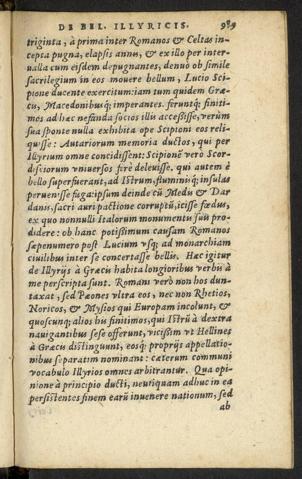 DE BEL. ILLYRICIS.
triginta, à prima inter Romanos & Celtas in-
cepta pugna, elapsis annis, & ex illo per inter-
ualla cum eisdem depugnantes, denuò ob simile
sacrilegium in eos mouere bellum, Lucio Sci-
pione ducente exercitum: iam tum quidem Græ-
cis, Macedonibusq; imperantes. feruntq; finiti-
mos ad hæc nefanda socios illis accessisse, verùm
sua sponte nulla exhibita ope Scipioni eos reli-
quisse: Autariorum memoria ducti, qui per
Illyrium omne concidissent: Scipionē verò Scor-
discorum vniuersos ferè deleuisse. qui autem è
bello superfuerant, ad Istrum, fluminisq; insulas
peruenisse fuga: ipsum deinde cū Medis & Dar
danis, sacri auri pactione corrupti, icisse fœdus,
ex quo nonnulli Italorum monumentis suis pro-
didere: ob hanc potissimum causam Romanos
sæpenumero post Lucium vsq; ad monarchiam
ciuilibus inter se certasse bellis. Hæc igitur
de Illyrijs à Græcis habita longioribus verbis à
me perscripta sunt. Romani verò non hos dun-
taxat, sed Pæones vltra eos, nec non Rhetios,
Noricos, & Mysios qui Europam incolunt, &
quoscunq; alios his finitimos, qui Istrū à dextra
nauigantibus sese offerunt, vicissim vt Hellines
à Græcis distinguunt, eosq; proprijs appellatio-
nibus separatim nominant: cæterum communi
vocabulo Illyrios omnes arbitrantur. Qua opi-
nione à principio ducti, neutiquam adhuc in ea
persistentes finem earū inuenere nationum, sed
ab